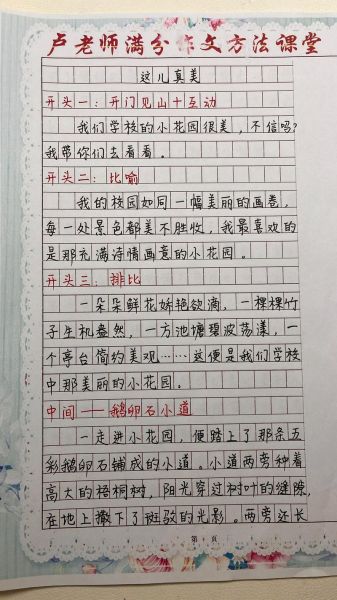 卢老师满分作文方法课堂
这儿真美
开头一：开门见山+互动
我们学校的小花园很美，不信吗？
我带你们去看看。
开头二：比喻
我的校园如同一幅美丽的画卷，
每一处景色都美不胜收，我最喜欢的
是那充满诗情画意的小花园。
开头三：排比
一朵朵鲜花娇艳欲滴，一棵棵竹
子生机盎然，一方池塘碧波荡漾，一
个亭台简约美观……这便是我们学校
中那美丽的小花园。
中间——鹅卵石小道
一走进小花园，便踏上了那条五
彩鹅卵石铺成的小道。小道两旁种着
高大的梧桐树，阳光穿过树叶的缝隙，
在地上撒下了斑驳的光影。两旁还长
第 页